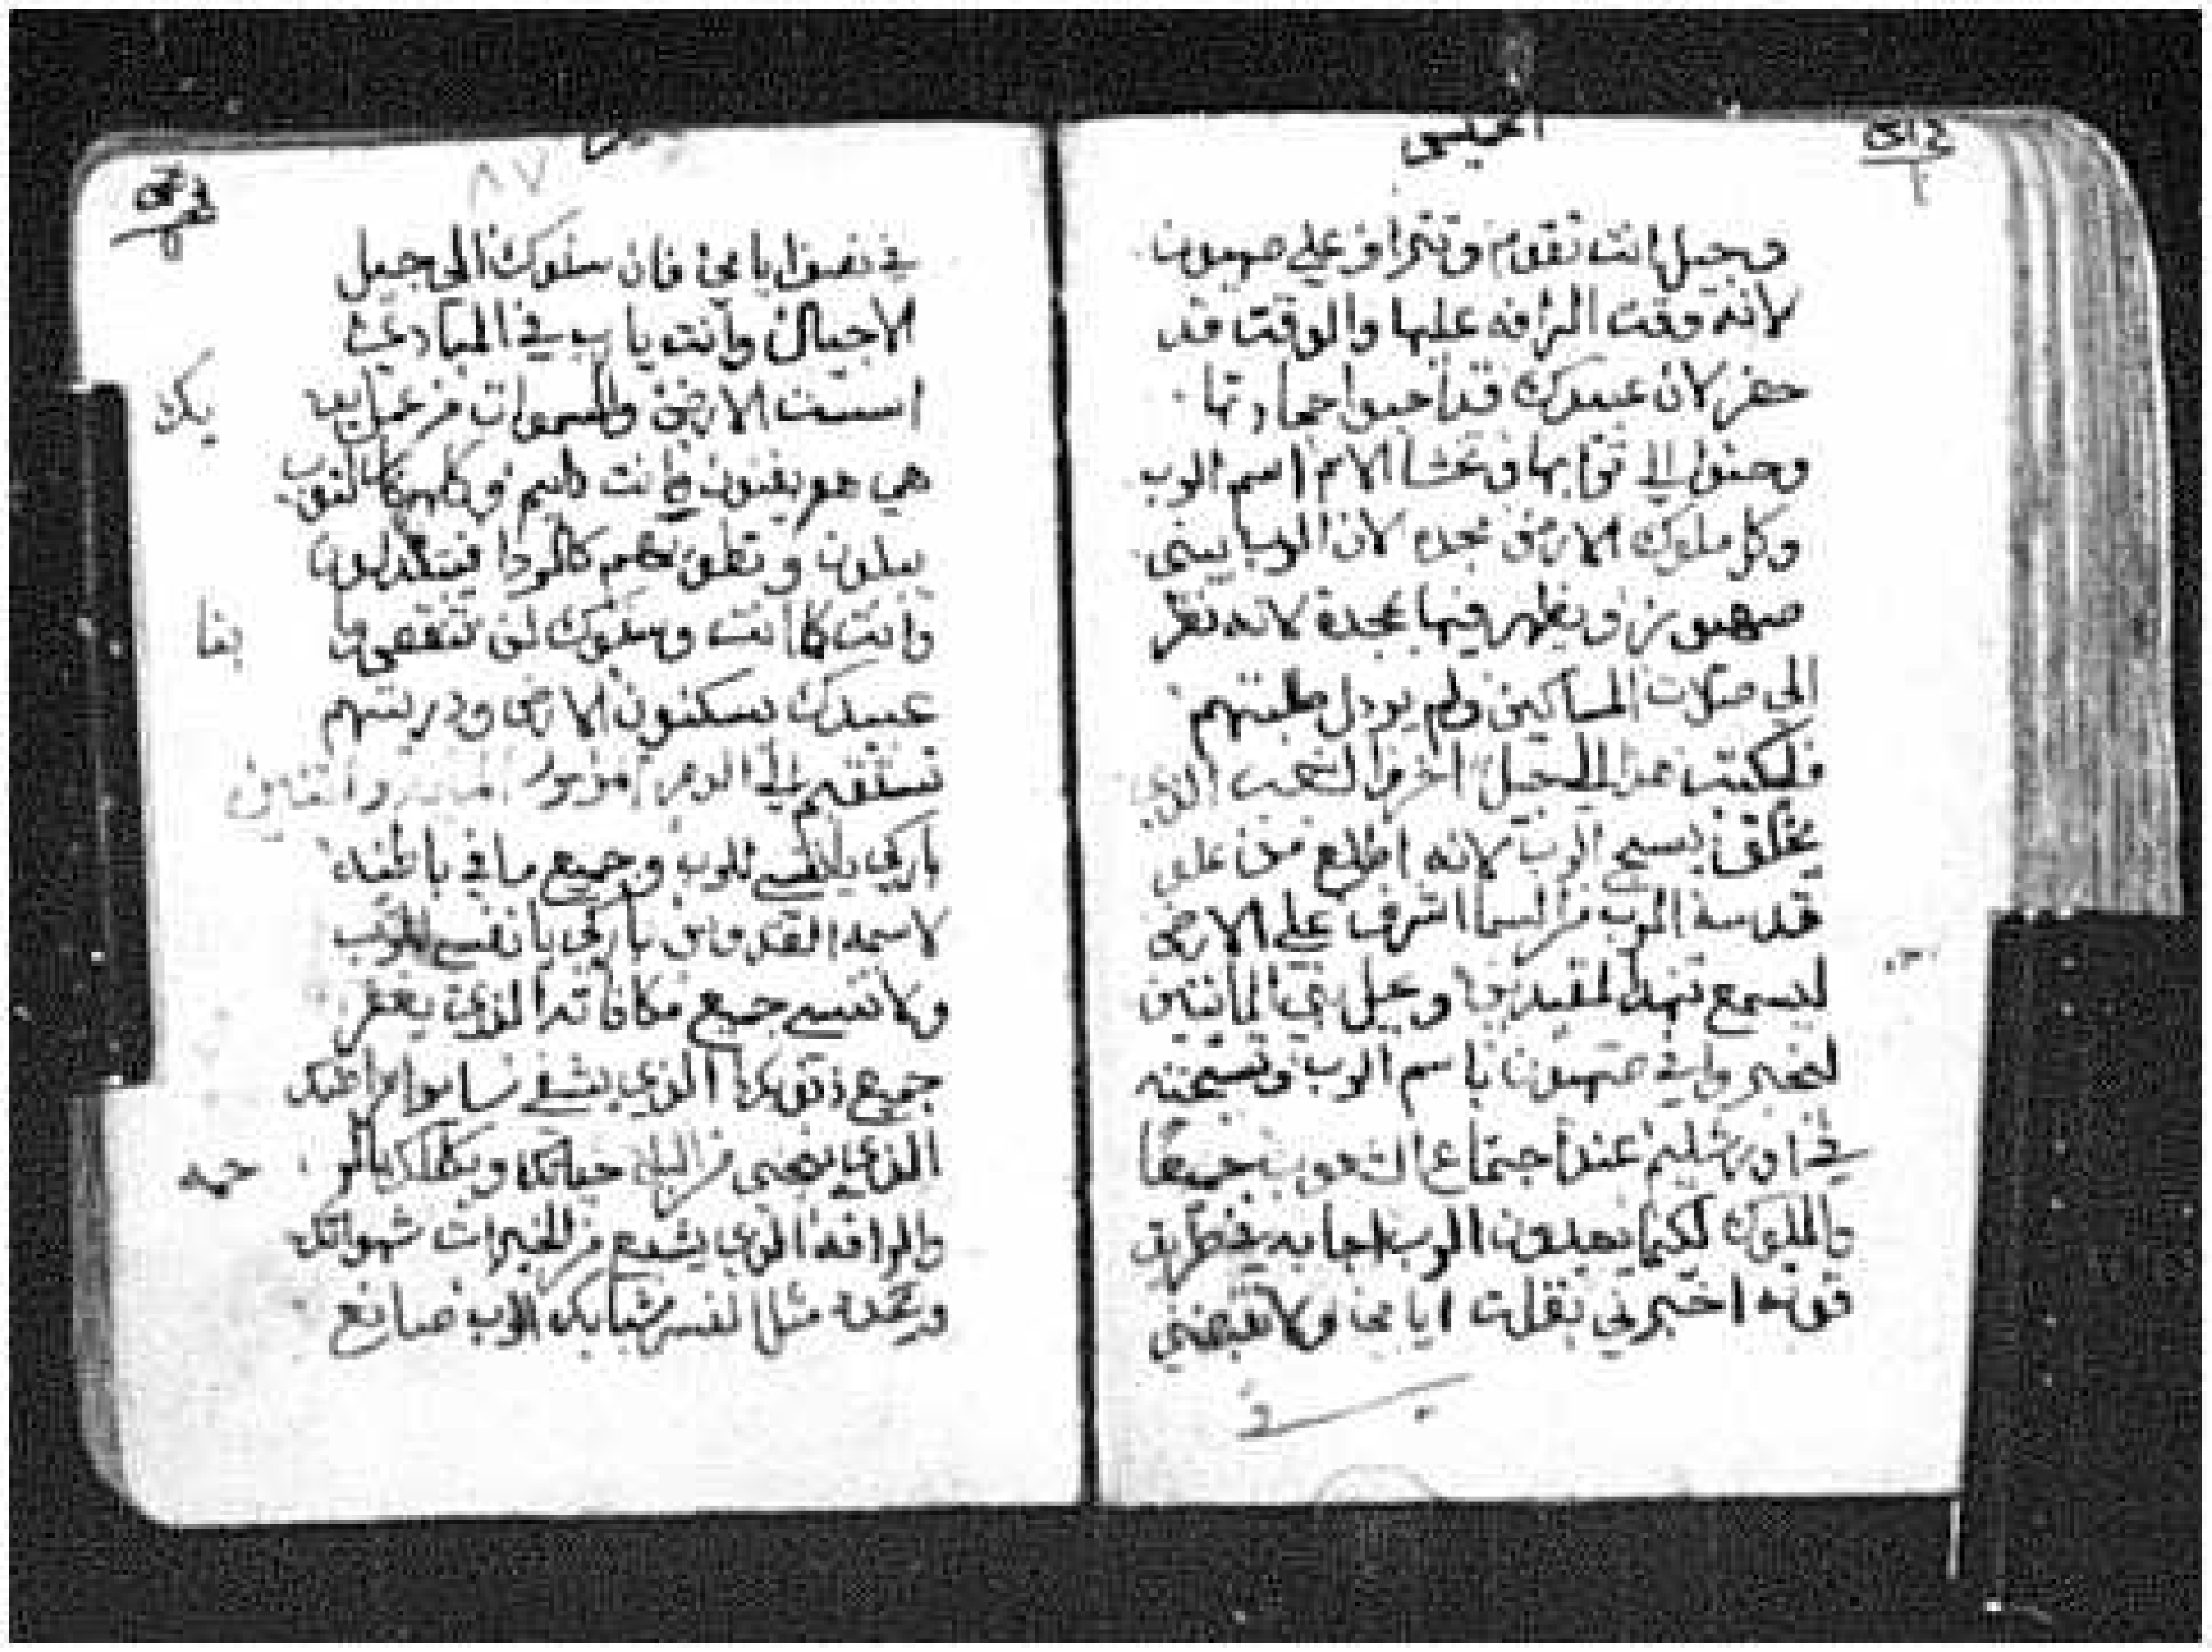 وجيل انت تقوم وتتراف على صهيون
لانه وقت الرافه عليها والوقت قد
حضر لان عبيدك قد احبوا حجارتها
وحنوا الى ترابها وتخشا الامم اسم الرب
وكل ملوك الارض مجده لان الرب يبنى
صهيون ويظهر فيها بمجده لانه نظر
الى صلات المساكين ولم يردل طلبتهم
فلتكتب هذا الجيل اخر والشعب الذى
يخلق يسبح الرب لانه اطلع من على
قدسه الرب من السما اشرف على الارض
ليسمع تنهد المقيدين ويحل بنى المائتين
ليخبروا في صهيون باسم الرب وتسبحته
في اورشليم عند اجتماع الشعوب جميعا
والملوك لكيما يعبدون الرب اجابه في طريق
قوته اخبرني بقلت ايامى ولا تقبضني
٨٧
في نصف ايامى فان سنوك الى جيل
الاجيال وانت يارب في المبادى
اسست الارض والسموات من عمل يديك
هي هم يفنون وانت دايم وكلهم كالثوب
يبلون وتطويهم كالردا فيتبدلون
وانت كما انت وسنوك لن تنقص وابنا
عبيدك يسكنون الارض وذريتهم
تستقيم الى الدهر المزمور المايه والثانى
باركي يا نفسي للرب وجميع ما في باطني
لاسمه القدوس باركي يا نفسي للرب
ولا تنسي جميع مكافاته الذي يغفر
جميع ذنوبك الذي يشفي ساير امراضك
الذي ينجى من البلى حياتك ويكللك بالرحمه
والرافه الذي يشبع من الخيرات شهواتك
ويتجدد مثل النسر شبابك الرب صانع